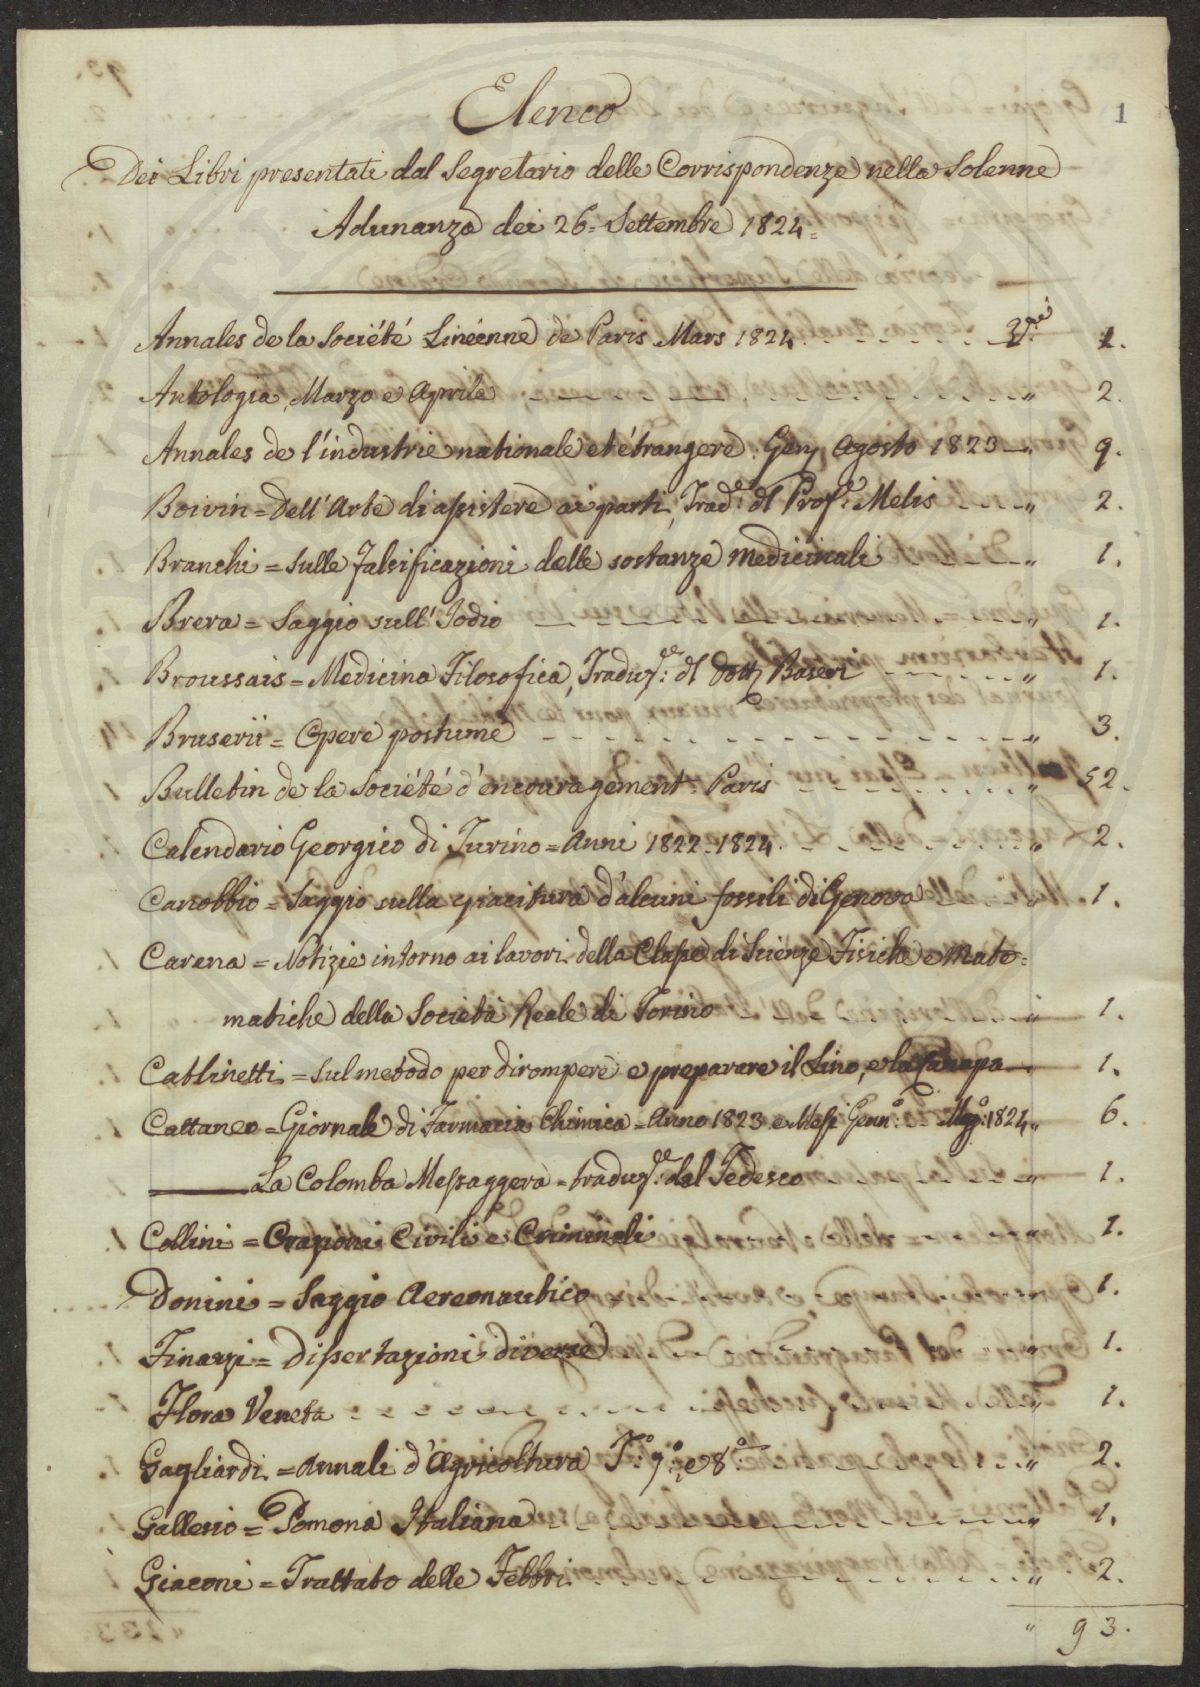 1
Elenco
Dei Libri presentati dal Segretario delle Corrispondenze nella Solenne
Adunanza dei 26= Settembre 1824=
Annales de la Société Linéenne de Paris Mars 1824 1.
Antologia, Marzo e Aprile " 2.
Annales de l'industrie nationale et étrangere. Genn Agosto 1823 " 9.
Boivin = Dell'Arte di assistere ai parti, Trad.e dl Prof.e Melis " 2.
Branchi = Sulle falsificazioni delle sostanze medicinali " 1.
Brera = Saggio sull'Jodio " 1.
Broussais = Medicina Filosofica, Traduz.e dl Dott Baseri " 1.
Bruserii = Opere postume " 3.
Bulletin de la Société d'encouragement. Paris " 52.
Calendario Georgico di Turino = Anni 1822-1824 " 2.
Canobbio = Saggio sulla giacitura d'alcuni fossili di Genova 1.
Carena = Notizie intorno ai lavori della Classe di Scienze Fisiche e Mate=
matiche della Società Reale di Torino " 1.
Catlinetti = Sul metodo per dirompere e preparare il Lino, e la Canapa 1.
Cattaneo = Giornale di Farmacia Chimica = Anno 1823 e Mesi Genn.o a Mag.o 1824 " 6.
La Colomba Messaggera = traduz.e dal Tedesco " 1.
Collini = Orazioni Civili e Criminali " 1.
Donini = Saggio Aereonautico 1.
Finazzi = Dissertazioni diverse " 1.
Flora Veneta " 1.
Gagliardi = Annali d'Agricoltura T.o 7.o, e 8.o " 2.
Gallesio = Pomona Italiana " 1.
Giaconi = Trattato delle Febbri " 2.
" 93.